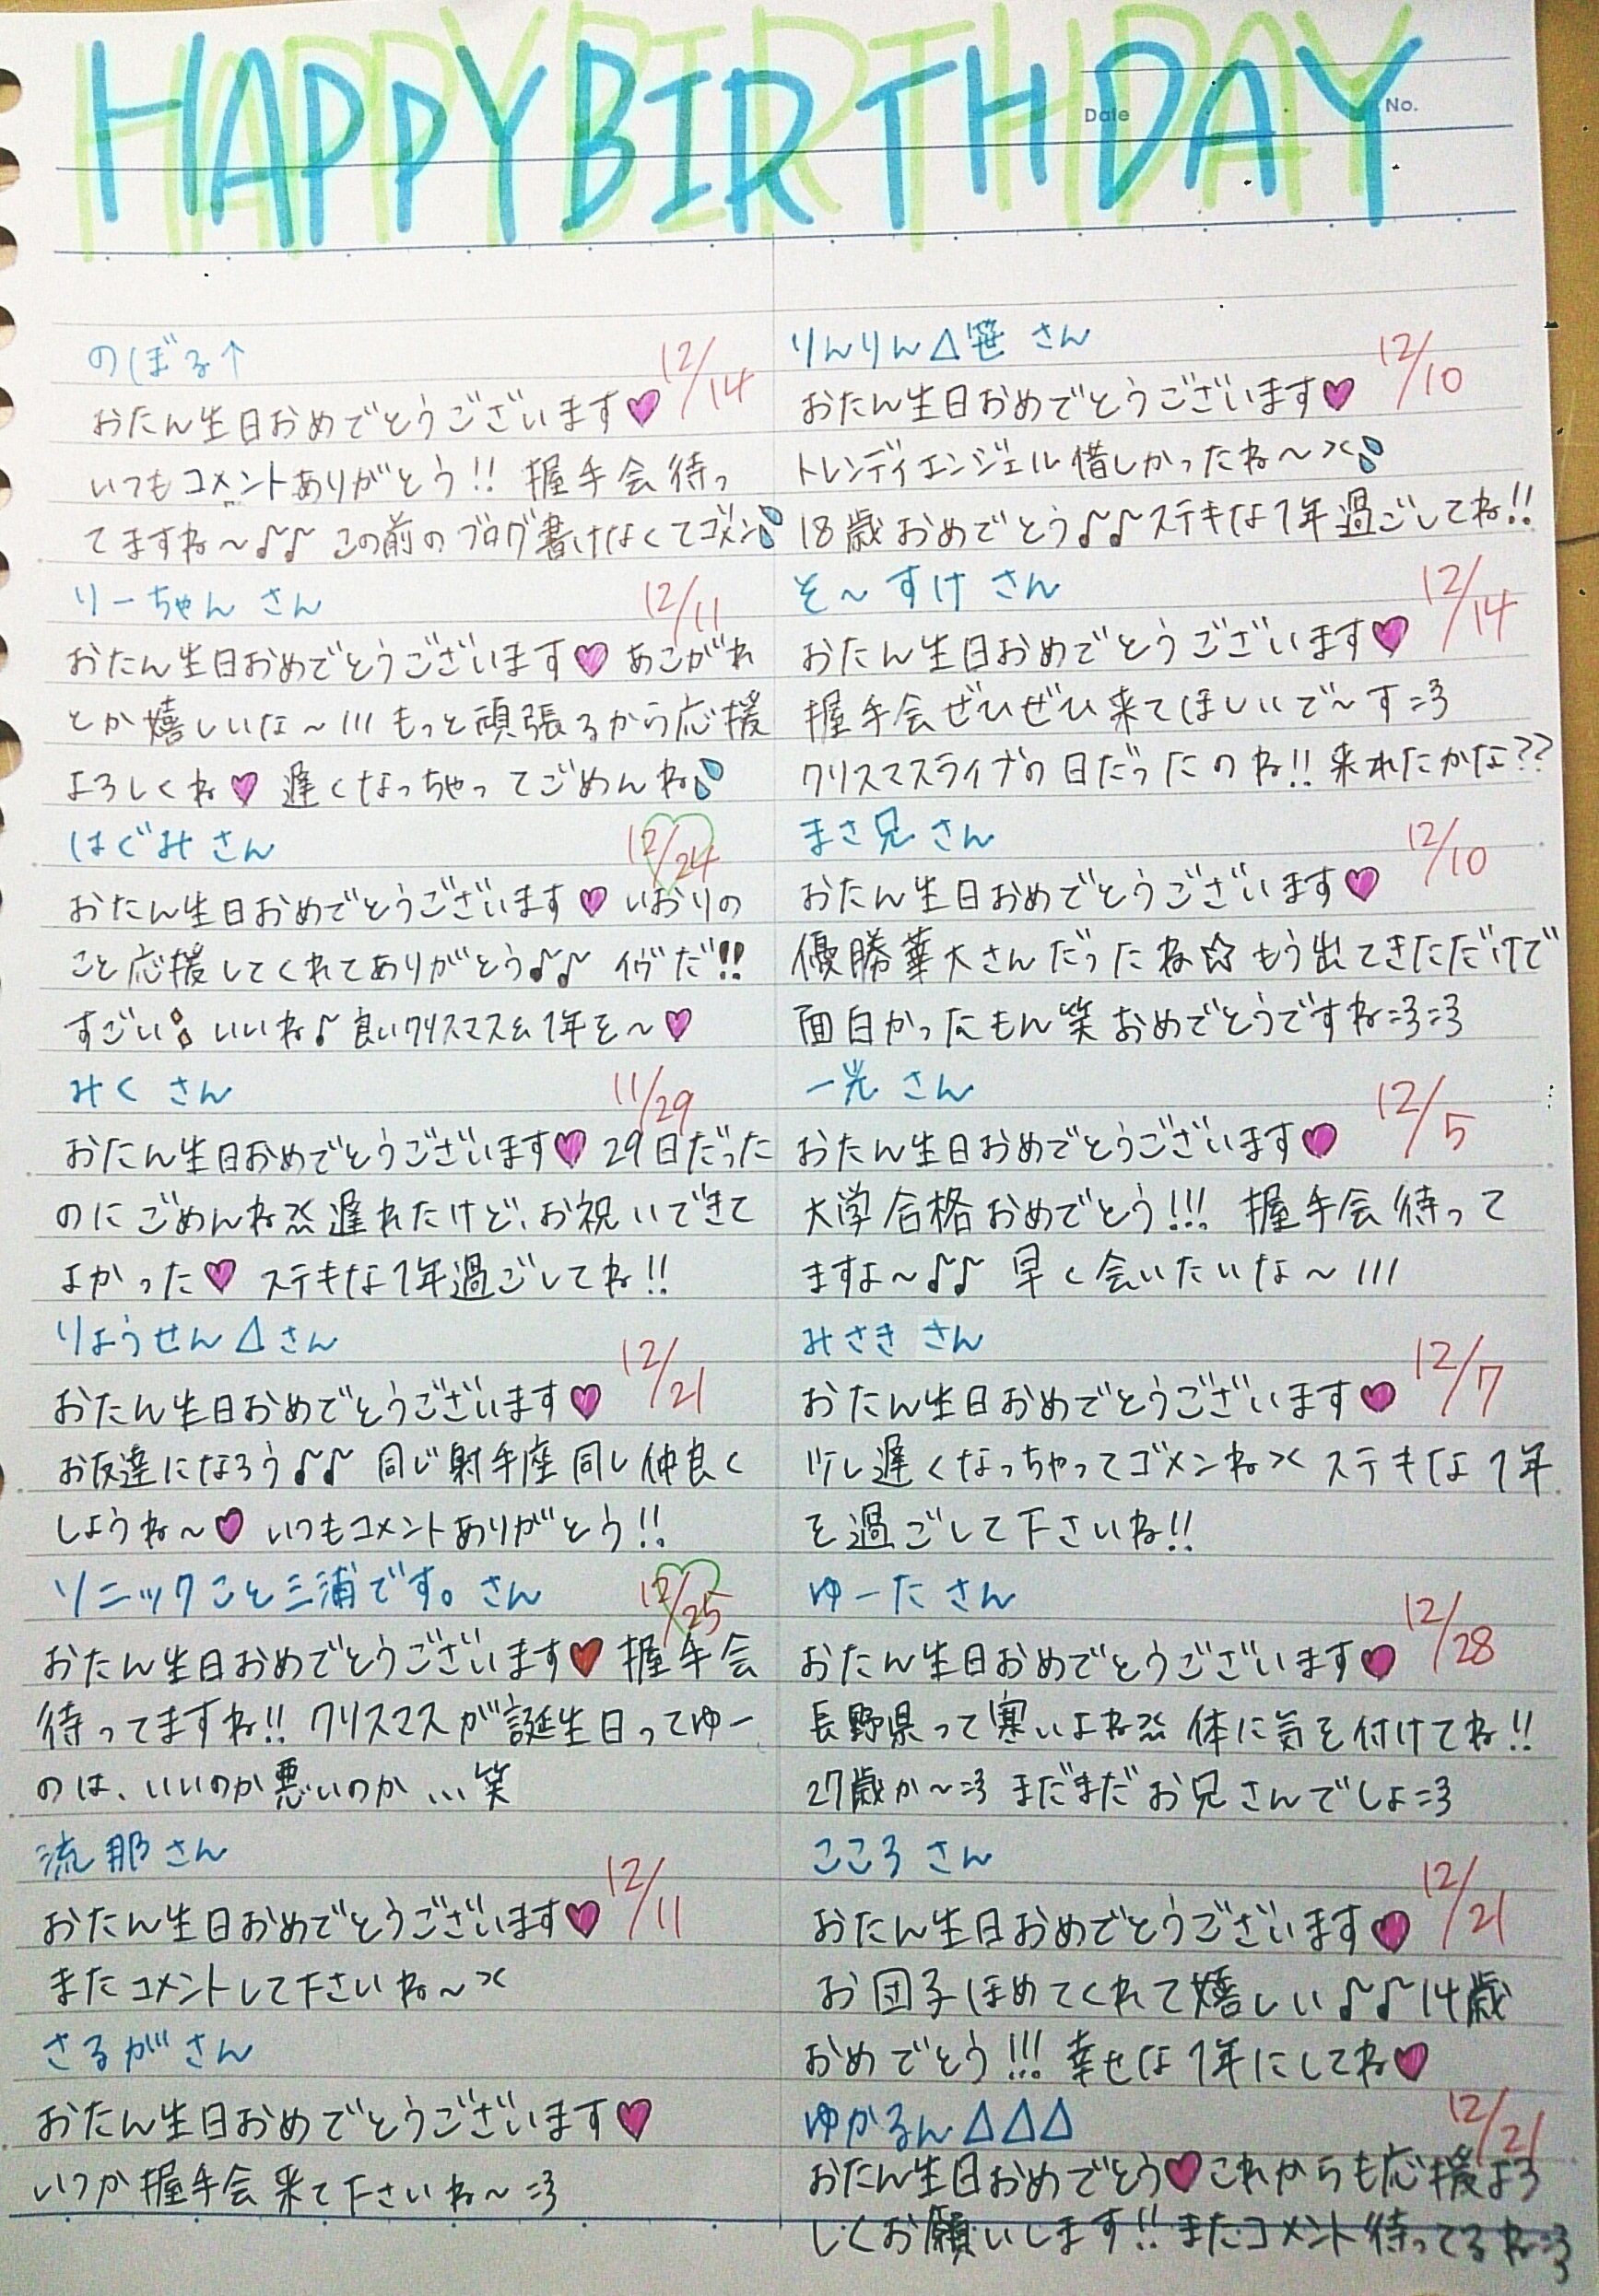 HAPPY BIRTHDAY
Date
No.
のぼる↑
12/14
おたん生日おめでとうございます♥
いつもコメントありがとう!! 握手会待っ
てますね～♪♪ この前のブログ書けなくてゴメン
りーちゃん さん
12/11
おたん生日おめでとうございます♥ あこがれ
とか嬉しいな～!!! もっと頑張るから応援
よろしくね♥ 遅くなっちゃってごめんね
はぐみさん
12/24
おたん生日おめでとうございます♥ いおりの
こと応援してくれてありがとう♪♪ イヴだ!!
すごい いいね♪ 良いクリスマス&1年を～♥
みく さん
11/29
おたん生日おめでとうございます♥ 29日だった
のに ごめんね 遅れたけど、お祝いできて
よかった♥ ステキな1年過ごしてね!!
りょうせん△さん
12/21
おたん生日おめでとうございます♥
お友達になろう♪♪ 同じ射手座同し仲良く
しようね～♥ いつもコメントありがとう!!
ソニックこと三浦です。さん
12/25
おたん生日おめでとうございます♥ 握手会
待ってますね!! クリスマスが誕生日ってゆー
のは、いいのか悪いのか…笑
流那さん
12/11
おたん生日おめでとうございます♥
またコメントして下さいね～
さるがさん
おたん生日おめでとうございます♥
いつか握手会来て下さいね～=3
りんりん△笹 さん
12/10
おたん生日おめでとうございます♥
トレンディエンジェル惜しかったね～
18歳おめでとう♪♪ステキな1年過ごしてね!!
そ～すけ さん
12/14
おたん生日おめでとうございます♥
握手会ぜひぜひ来てほしいで～す=3
クリスマスライブの日だったのね!! 来れたかな??
まさ兄 さん
12/10
おたん生日おめでとうございます♥
優勝華大さんだったね☆もう出てきただけで
面白かったもん笑 おめでとうですね=3=3
一光 さん
12/5
おたん生日おめでとうございます♥
大学合格おめでとう!!! 握手会待って
ますよ～♪♪ 早く会いたいな～!!!
みさき さん
12/7
おたん生日おめでとうございます♥
少し遅くなっちゃってゴメンね ステキな1年
を過ごして下さいね!!
ゆーた さん
12/28
おたん生日おめでとうございます♥
長野県って寒いよね 体に気を付けてね!!
27歳か～=3 まだまだお兄さんでしょ=3
こころ さん
12/21
おたん生日おめでとうございます♥
お団子ほめてくれて嬉しい♪♪14歳
おめでとう!!! 幸せな1年にしてね♥
ゆかるん△△△
12/21
おたん生日おめでとう♥これからも応援よろ
しくお願いします!! またコメント待ってるね=3